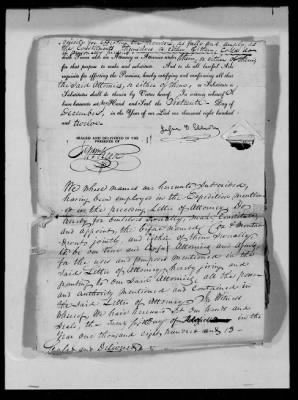 as the Constituents themselves or either of them could do
if personally present, with Power also for them or either of them
for that purpose to make and substitute. And to do all lawful Acts
requisite for effecting the Premises, hereby ratifying and confirming all that
the said Attornies, or either of them, or Substitute or
Substitutes shall do therein by Virtue hereof. In witness whereof We
have hereunto set our Hand and Seal the Day of
December, in the Year of our Lord one thousand eight hundred
and twelve
SEALED AND DELIVERED IN THE
PRESENCE OF
We whose names are hereunto Subscribed,
having been employed in the Expedition mention
ed in the preceding Letter of Attorney, Do
hereby for ourselves severally, make, Constitute
and appoint the before named Cox & Montau
devert jointly, and either of them severally
to be our true and Lawful Attornies and Attorney
for the uses and purposes mentioned in the
said Letter of Attorney, hereby giving and
granting to our said Attornies all the power
and Authority mentioned and contained in
the said Letter of Attorney. In Witness
Whereof, We have hereunto set our hands and
Seals, the first day of in the
Year one thousand eight hundred and 13
Sealed and Delivered